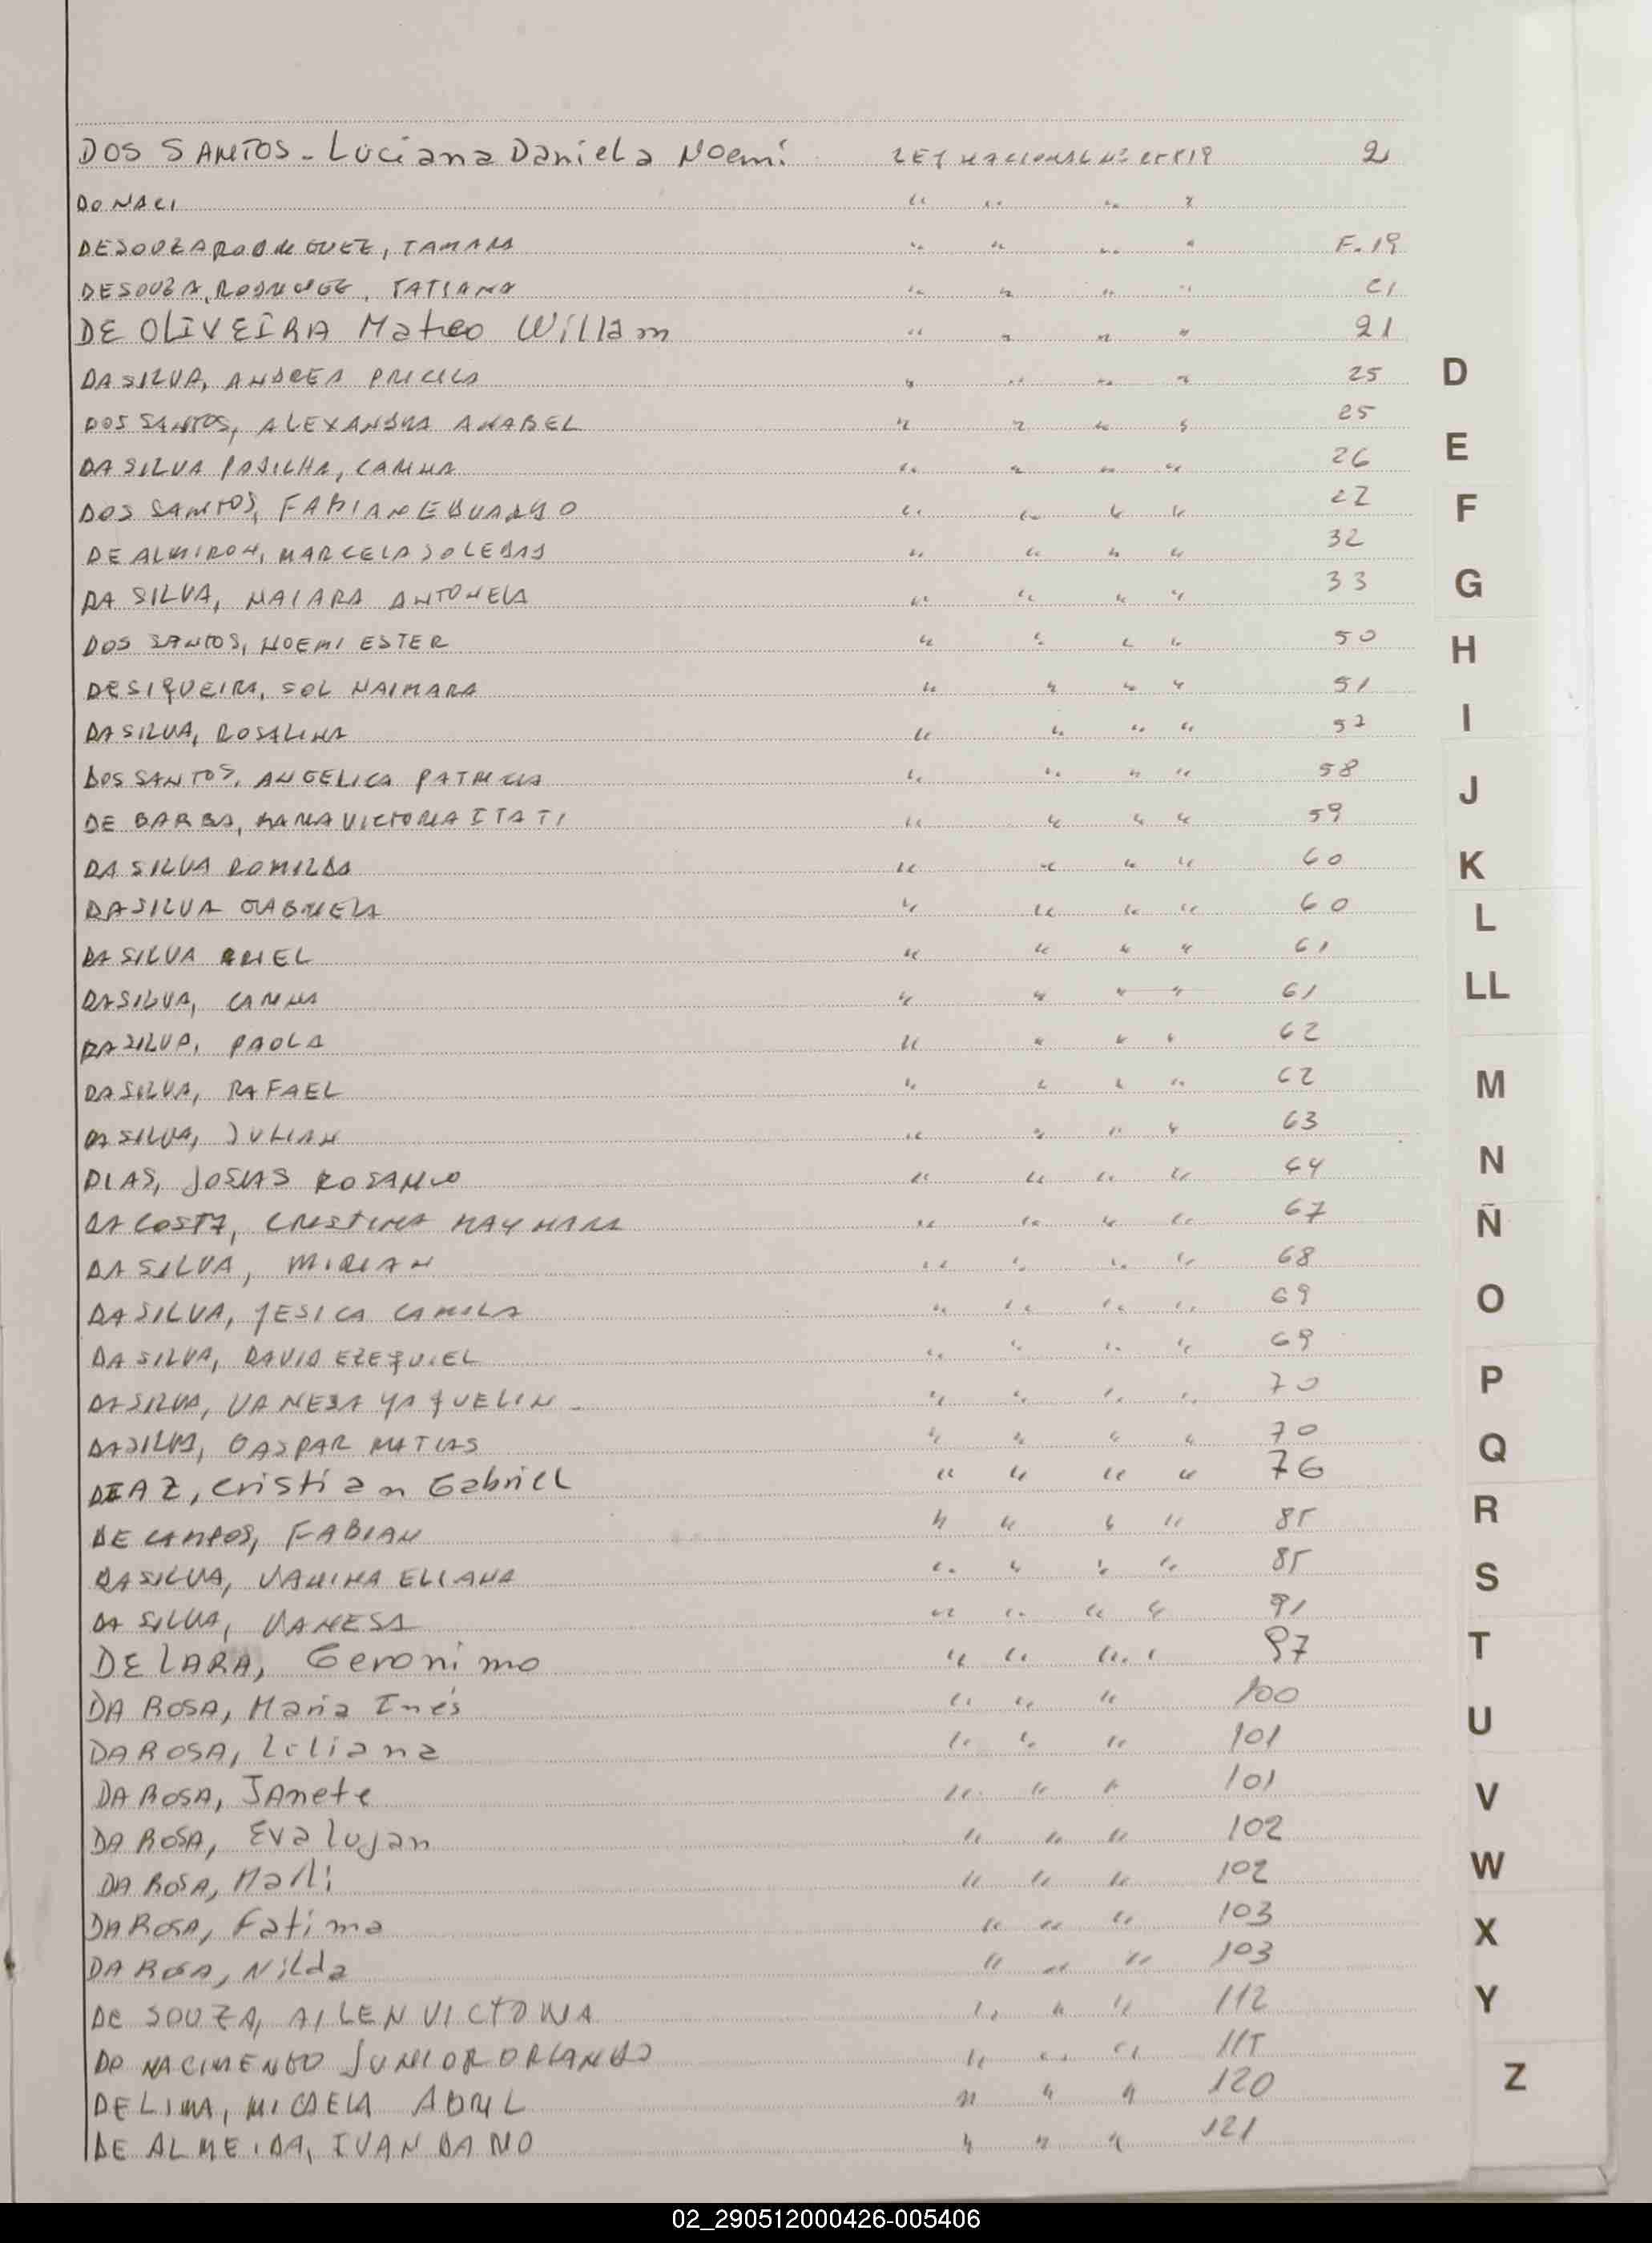 DOS SANTOS - Luciana Daniela Noemi LEY NACIONAL Nº 25819 2
DO NACI " " " "
DESOUZA RODRIGUEZ, TAMARA " " " " F. 19
DESOUZA, RODRIGUEZ, TATIANA " " " "
DE OLIVEIRA Mateo Willam " " " " 21
DA SILVA, ANDREA PRICILA " " " " 25
D
DOS SANTOS, ALEXANDRA ANABEL " " " " 25
E
DA SILVA PADILHA, CARINA " " " " 26
DOS SANTOS, FABIAN EDUARDO " " " " 27
F
DE ALMIRON, MARCELA SOLEDAD " " " " 32
G
DA SILVA, NAIARA ANTONELA " " " " 33
DOS SANTOS, NOEMI ESTER " " " " 50
H
DESIQUEIRA, SOL NAIMARA " " " " 51
I
DA SILVA, ROSALINA " " " " 52
DOS SANTOS, ANGELICA PATRICIA " " " " 58
J
DE BARBA, MARIA VICTORIA ITATI " " " " 59
DA SILVA ROMILDA " " " " 60
K
DA SILVA GABRIELA " " " " 60
L
DA SILVA ARIEL " " " " 61
DA SILVA, CARINA " " " " 61
LL
DA SILVA, PAOLA " " " " 62
DA SILVA, RAFAEL " " " " 62
M
DA SILVA, JULIAN " " " " 63
DIAS, JOSIAS ROSARIO " " " " 64
N
DA COSTA, CRISTINA NAYMARA " " " " 67
Ñ
DA SILVA, MIRIAN " " " " 68
DA SILVA, JESICA CAMILA " " " " 69
O
DA SILVA, DAVID EZEQUIEL " " " " 69
DA SILVA, VANESA YAQUELIN - " " " " 70
P
DA SILVA, GASPAR MATIAS " " " " 70
Q
DIAZ, Cristian Gabriel " " " " 76
DE CAMPOS, FABIAN " " " " 85
R
DA SILVA, VANINA ELIANA " " " " 85
S
DA SILVA, VANESA " " " " 91
DE LARA, Geronimo " " " " 97
T
DA ROSA, Maria Inés " " " 100
DA ROSA, Liliana " " " 101
U
DA ROSA, JAnete " " " 101
V
DA ROSA, Eva lujan " " " 102
DA ROSA, Marli " " " 102
W
DA ROSA, Fatima " " " 103
X
DA ROSA, Nilda " " " 103
DE SOUZA, AILEN VICTORIA " " " 112
Y
DO NACIMENTO JUNIOR ORLANDO " " " 115
DE LIMA, MICAELA ABRIL " " " 120
Z
DE ALMEIDA, IVAN DARIO " " " 121
02_290512000426-005406